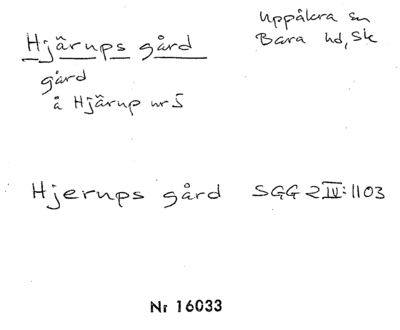 Hjärups gård
Uppåkra sn
Bara hd, Sk
gård
å Hjärup nr 5
Hjerups gård SGG 2 IV:1103
Nr 16033